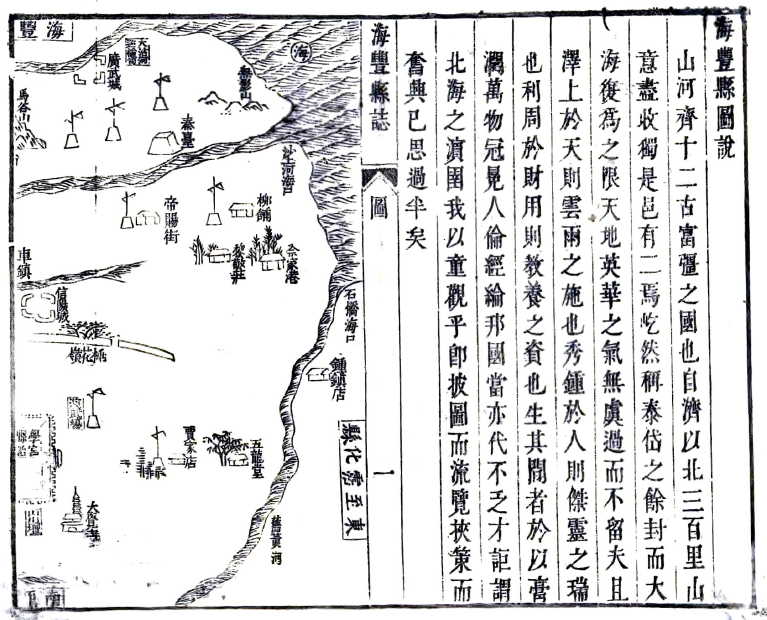 海豐縣圖說
山河齊十二古富彊之國也自濟以北三百里山
意盡收獨是邑有二焉屹然稱泰岱之餘封而大
海復爲之限天地英華之氣無虞過而不留夫且
澤上於天則雲雨之施也秀鍾於人則傑靈之瑞
也利周於財用則教養之資也生其間者於以膏
瀾萬物冠冕人倫經綸邦國當亦代不乏才詎謂
北海之濱囿我以童觀乎卽披圖而流覽挾策而
奮興已思過半矣
海豐縣誌
圖
一
海豐
海
廣武城
馬谷山
秦臺
沙河海口
帝賜街
柳鋪
車鎮
石橋海口
鍾鎮店
桃花嶺
學宮
賈家店
五龍堂
東至霑化縣
舊黃河
南